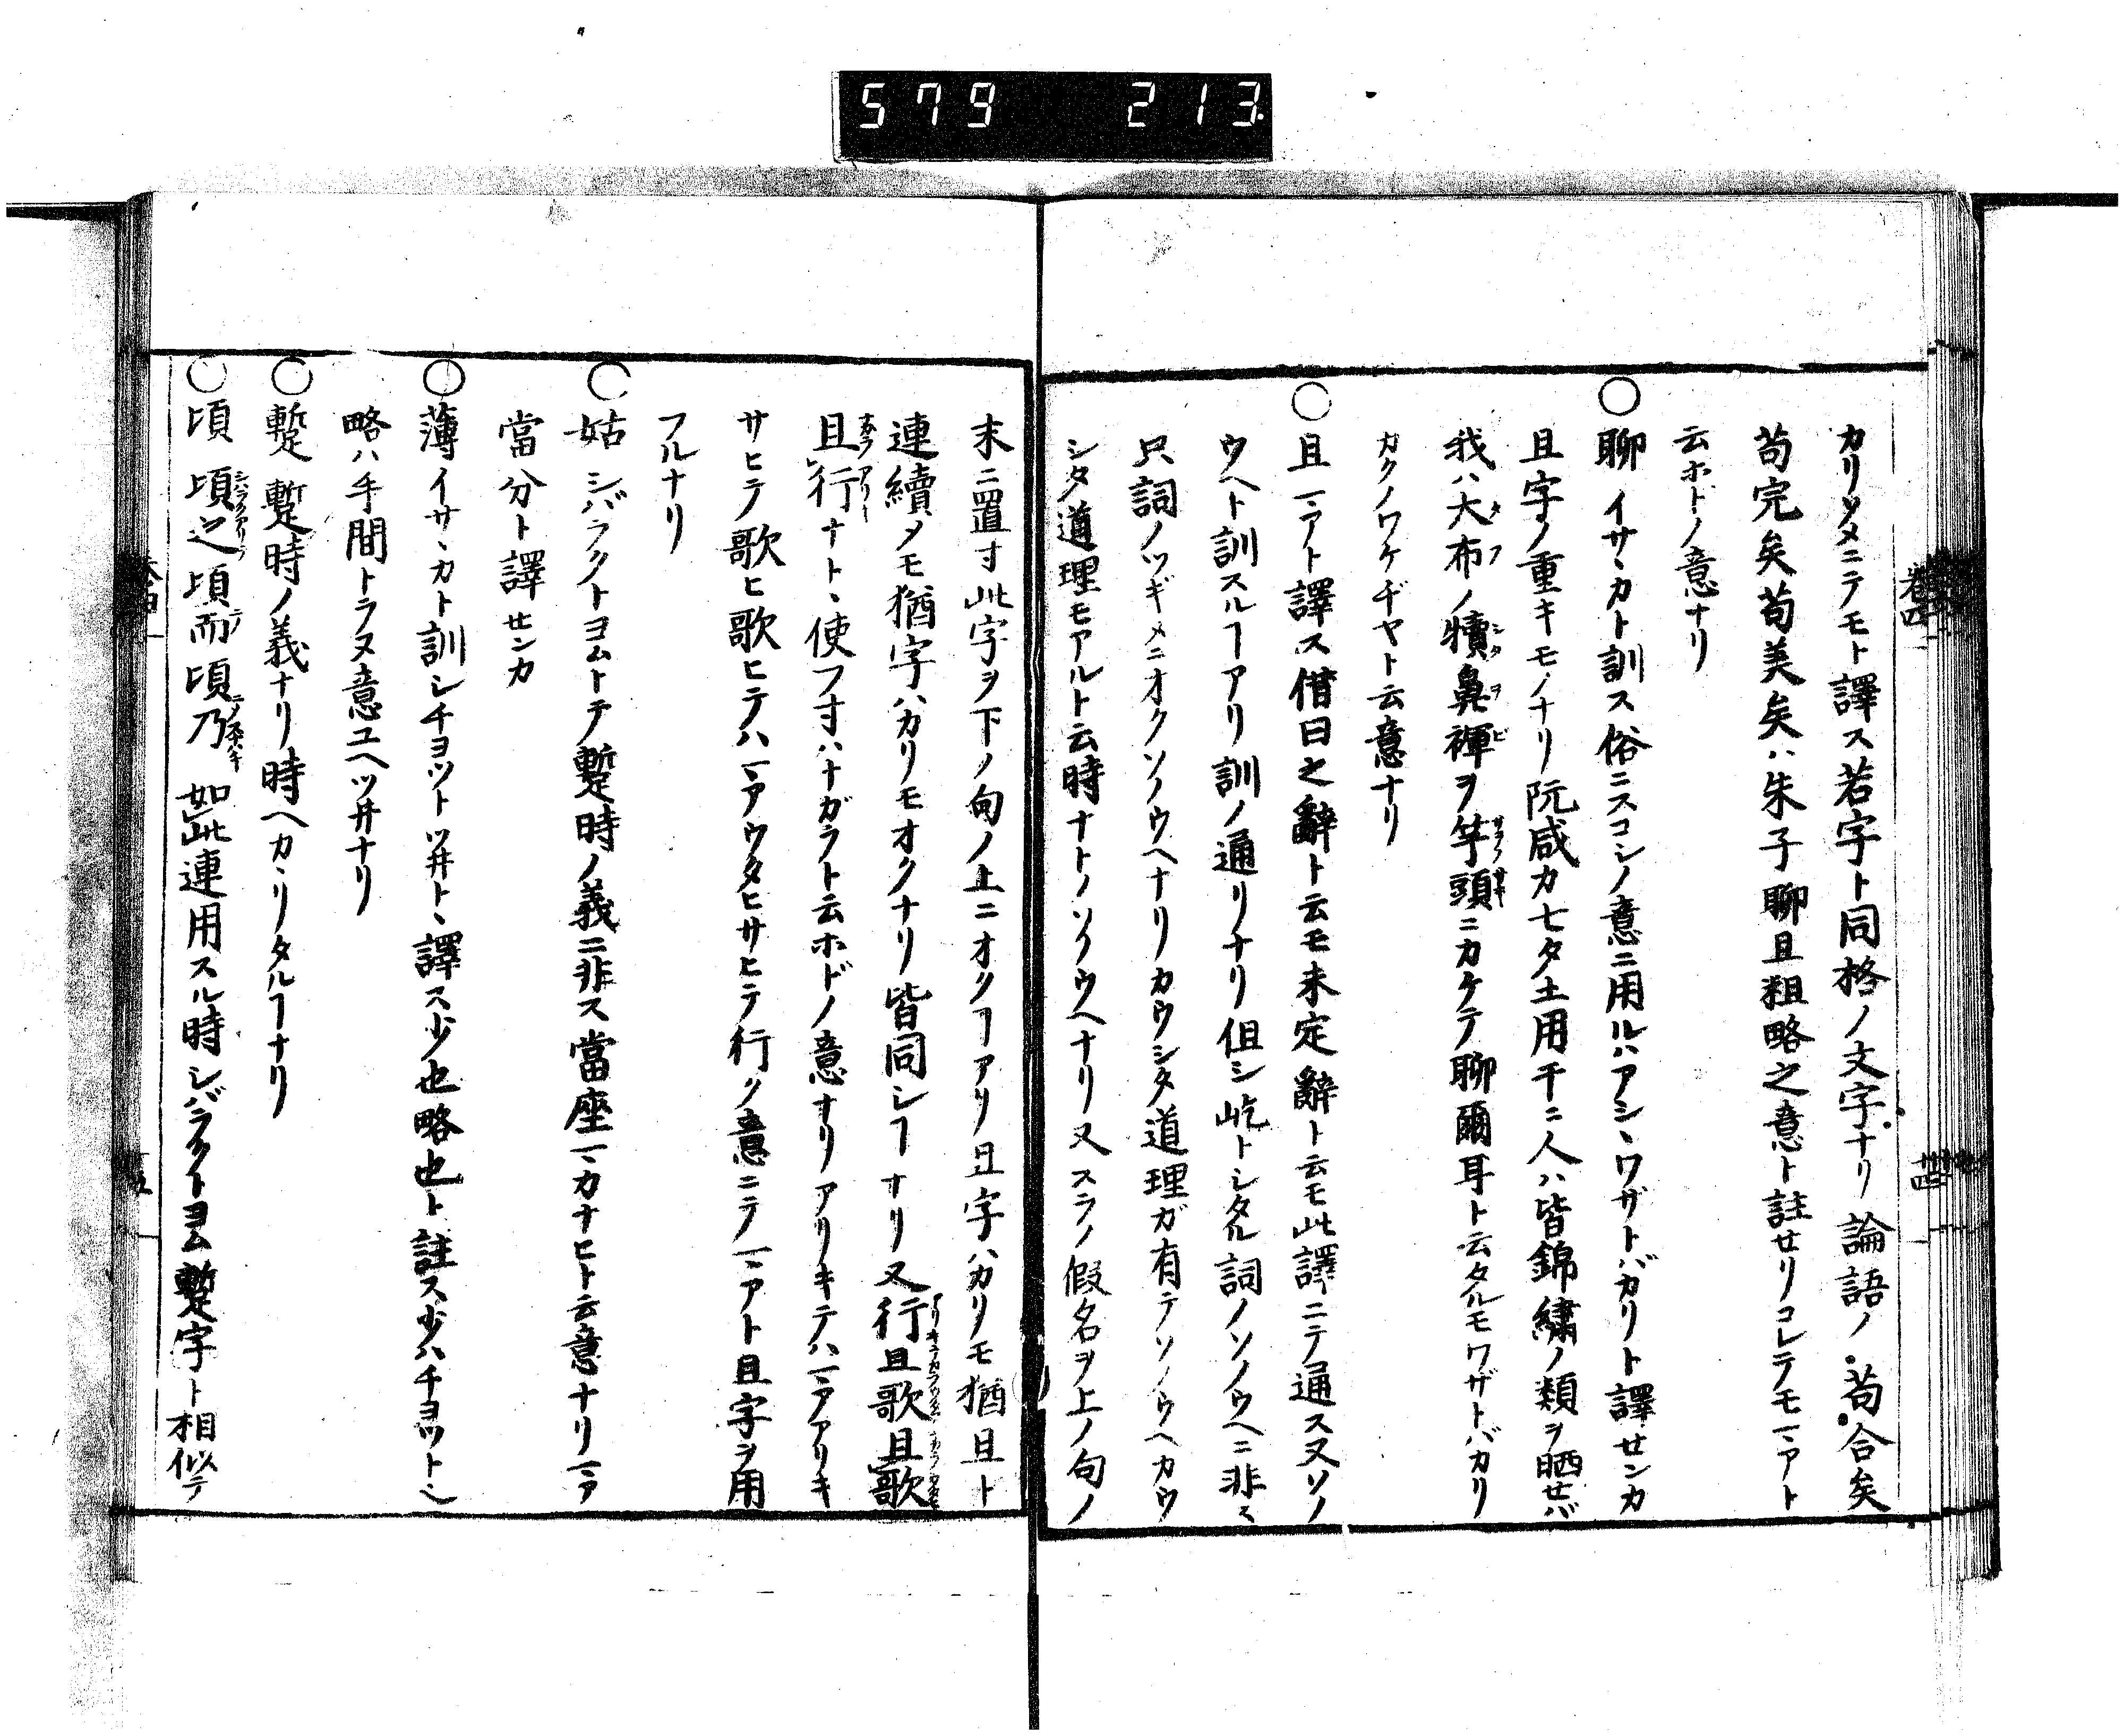 579 213
カリソメニテモト譯ス若字ト同格ノ文字ナリ論語ノ苟合矣
苟完矣苟美矣ハ朱子聊且粗略之意ト註せリコレテモ一ヽアト
云ホドノ意ナリ
○聊 イサヽカト訓ス俗ニスコシノ意ニ用ルハアシヽワザトバカリト譯せンカ
且字ノ重キモノナリ阮咸カ七夕土用干ニ人ハ皆錦繍ノ類ヲ晒せバ
我ハ大布ノ犢鼻褌ヲ竿頭ニカケテ聊爾耳ト云タルモワザトバカリ
カクノワケヂヤト云意ナリ
○且 一ヽアト譯ス借曰之辭ト云モ未定辭ト云モ此譯ニテ通ス又ソノ
ウヘト訓スルヿアリ訓ノ通リナリ但シ屹トシタル詞ノソノウヘニ非ス
只詞ノツギメニオクソノウヘナリカウシタ道理ガ有テソノウヘカウ
シタ道理モアルト云時ナトノソノウヘナリ又スラノ假名ヲ上ノ句ノ
末ニ置寸此字ヲ下ノ句ノ上ニオクヿアリ且字ハカリモ猶且ト
連續メモ猶字ハカリモオクナリ皆同シヿナリ又行且歌且歌
且行ナトヽ使フ寸ハナガラト云ホドノ意ナリアリキテハ一ヽアアリキ
サヒテ歌ヒ歌ヒテハ一ヽアウタヒサヒテ行ク意ニテ一ヽアト且字ヲ用
フルナリ
○姑 シバラクトヨムトテ蹔時ノ義ニ非ス當座一ヽカナヒト云意ナリ一ヽア
當分ト譯せンカ
○薄 イサヽカト訓シチヨツトツ井トヽ譯ス少也略也ト註ス少ハチヨツトヽ
略ハ手間トラヌ意ユヘツ井ナリ
○蹔 蹔時ノ義ナリ時ヘカヽリタルヿナリ
○頃 頃之頃而頃乃 如此連用スル時シバラクトヨム蹔字ト相似テ